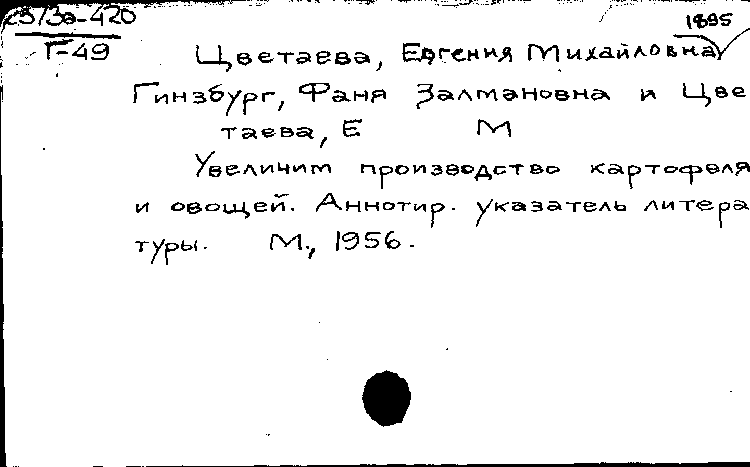 1895
Г-49
Цветаева, Евгения Михайловна
Гинзбург, Фаня Залмановна и Цве
таева, Е М
Увеличим производство картофеля
и овощей. Аннотир. указатель литера
туры. М., 1956.